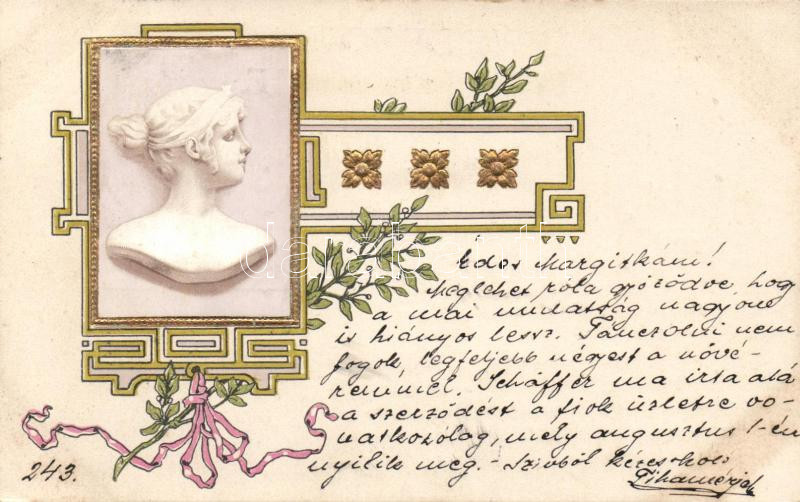 Édes Margitkám!
Meglehet róla győződve, hogy
a mai mulatság nagyon
is hiányos lessz. Tánczolni nem
fogok, legfeljebb négyest a nővé-
remmel. Schäffer ma irta alá
a szerződést a fiók üzletre vo-
natkozólag, mely augusztus 1-én
nyilik meg. - Szivből
243.